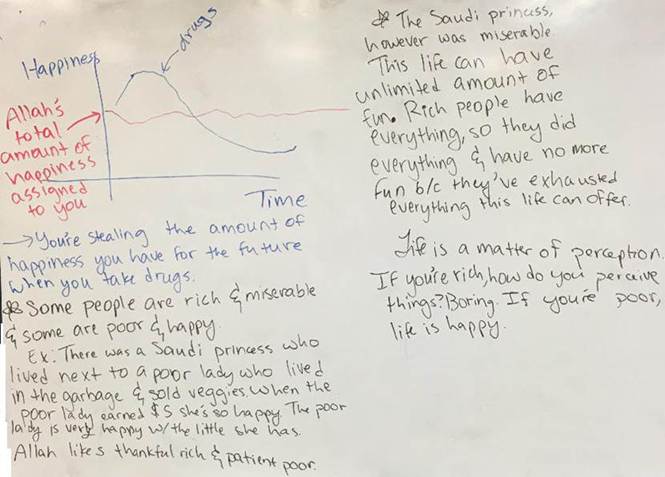 drugs
Happiness
Allah's
total
amount of
happiness
assigned
to you
Time
→ You're stealing the amount of
happiness you have for the future
when you take drugs.
* Some people are rich & miserable
& some are poor & happy.
Ex: There was a Saudi princess who
lived next to a poor lady who lived
in the garbage & sold veggies. When the
poor lady earned $5 she's so happy. The poor
lady is very happy w/ the little she has.
Allah likes thankful rich & patient poor.
* The Saudi princess,
however was miserable
This life can have
unlimited amount of
fun. Rich people have
everything, so they did
everything & have no more
fun b/c they've exhausted
everything this life can offer.
Life is a matter of perception.
If you're rich, how do you percive
things? Boring. If you're poor,
life is happy.